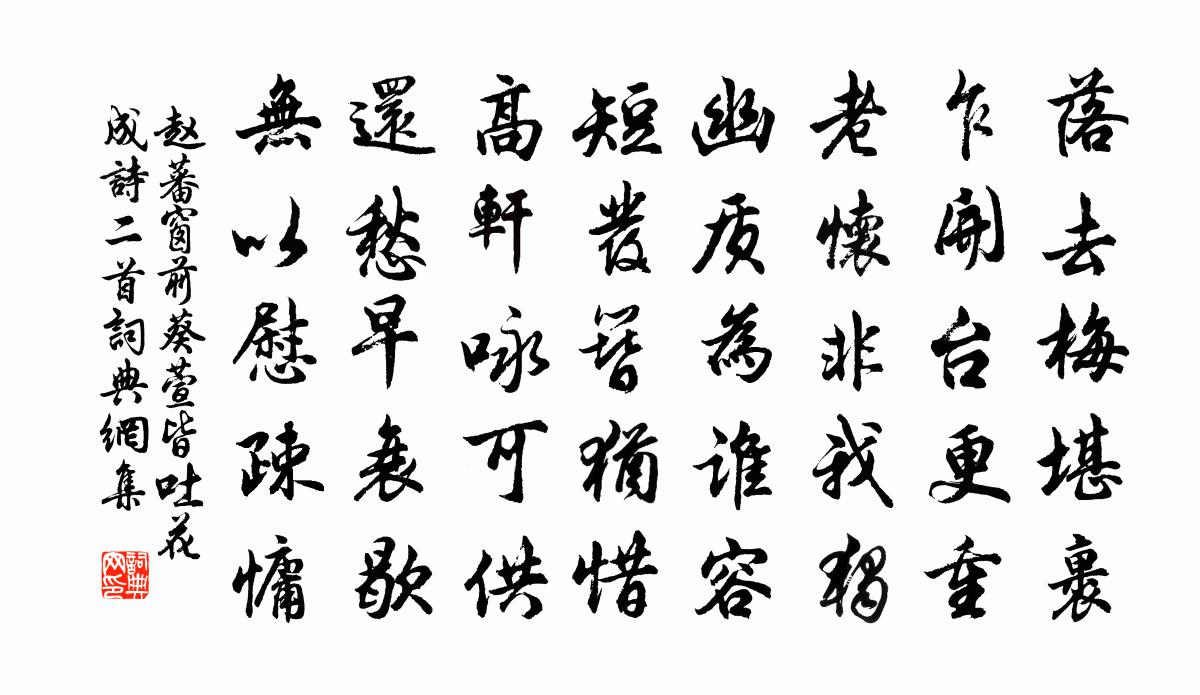 落去梅堪裹
乍開台更重
老懷非我獨
幽质為誰容
短發簪猶惜
高軒咏可供
還愁早衰歇
無以慰疎慵
赵蕃窗前葵萱皆吐花
成詩二首詞典網集
詞典网印